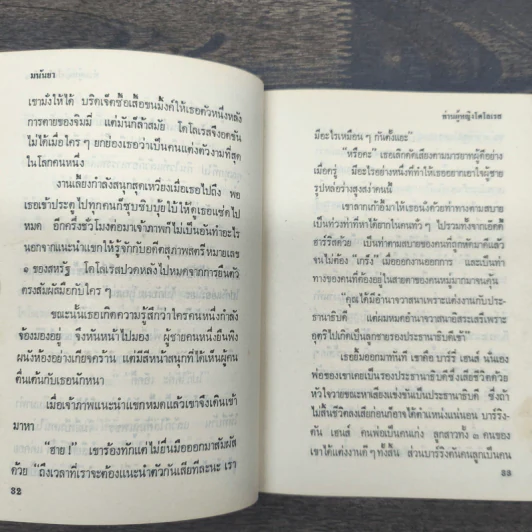 มนันยา
เขามั่งให้ได้ บริตเจ็ตซื้อเสื้อขนมิ้งค์ให้เธอตัวหนึ่งหลัง
การตายของจิมมี่ แต่มันก็ล้าสมัย โดโลเรสจึงอดขัน
ไม่ได้เมื่อใคร ๆ ยกย่องเธอว่าเป็นคนแต่งตัวงามที่สุด
ในโลกคนหนึ่ง
งานเลี้ยงกำลังสนุกสุดเหวี่ยงเมื่อเธอไปถึง พอ
เธอเข้าประตูไปทุกคนก็ซุบซิบบุ้ยใบ้ให้ดูเธอแซ่ดไป
หมด อีกครึ่งชั่วโมงต่อมาเจ้าภาพก็ไม่เป็นอันทำอะไร
นอกจากแนะนำแขกให้รู้จักกับอดีตสุภาพสตรีหมายเลข
๑ ของสหรัฐ โดโลเรสปวดหลังไปหมดจากการยืนตัว
ตรงสัมผัสมือกับใคร ๆ
ขณะนั้นเธอเกิดความรู้สึกว่าใครคนหนึ่งกำลัง
จ้องมองอยู่ จึงหันหน้าไปมอง ผู้ชายคนหนึ่งยืนพิง
ผนังห้องอย่างเกียจคร้าน แต่มีสีหน้าสนุกที่ได้เห็นผู้คน
ตื่นเต้นกับเธอนักหนา
เมื่อเจ้าภาพแนะนำแขกหมดแล้วเขาจึงเดินเข้า
มาหา
"ฮาย !" เขาร้องทักแต่ไม่ยื่นมือออกมาสัมผัส
ด้วย "ถึงเวลาที่เราจะต้องแนะนำตัวกันเสียทีละนะ เรา
32
ท่านผู้หญิงโดโลเรส
มีอะไรเหมือน ๆ กันตั้งแยะ"
"หรือคะ" เธอเลิกคิ้วเสียงตามมารยาทผู้ดีอย่าง
เมื่อครู่ มีอะไรอย่างหนึ่งที่ทำให้เธออยากเอาใจผู้ชาย
รูปหล่อร่างสูงสง่าคนนี้
เขาลากเก้าอี้มาให้เธอนั่งด้วยท่าทางตามสบาย
เป็นท่วงท่าที่หาได้ยากในคนทั่ว ๆ ไปรวมทั้งเจอดีดี้
ธาร์ริสด้วย เป็นท่าตามสบายของคนที่ถูกหัดมาดีแล้ว
จนไม่ต้อง "เกร็ง" เมื่อออกงานออกการ และเป็นท่า
ทางของคนที่ต้องอยู่ในสายตาของคนหมู่มากมาจนคุ้น
"คุณได้มีอำนาจวาสนาเพราะแต่งงานกับประ-
ธานาธิบดี แต่ผมหมดอำนาจวาสนาอิสระเสรีเพราะ
อุตริไปเกิดเป็นลูกชายรองประธานาธิบดีเข้า"
เธอยิ้มออกมาทันที เขาคือ บาร์รี่ เฮนส์ นั่นเอง
พ่อของเขาเคยเป็นรองประธานาธิบดีซึ่งเสียชีวิตด้วย
หัวใจวายขณะหาเสียงแข่งขันเป็นประธานาธิบดี ซึ่งถ้า
ไม่สิ้นชีวิตลงเสียก่อนก็อาจได้ตำแหน่งแน่นอน บาร์ริง-
ตัน เฮนส์ คนพ่อเป็นคนเก่ง ลูกสาวทั้ง ๖ คนของ
เขาได้แต่งงานดี ๆ ทั้งสิ้น ส่วนบาร์ริงตันคนลูกเป็นคน
33